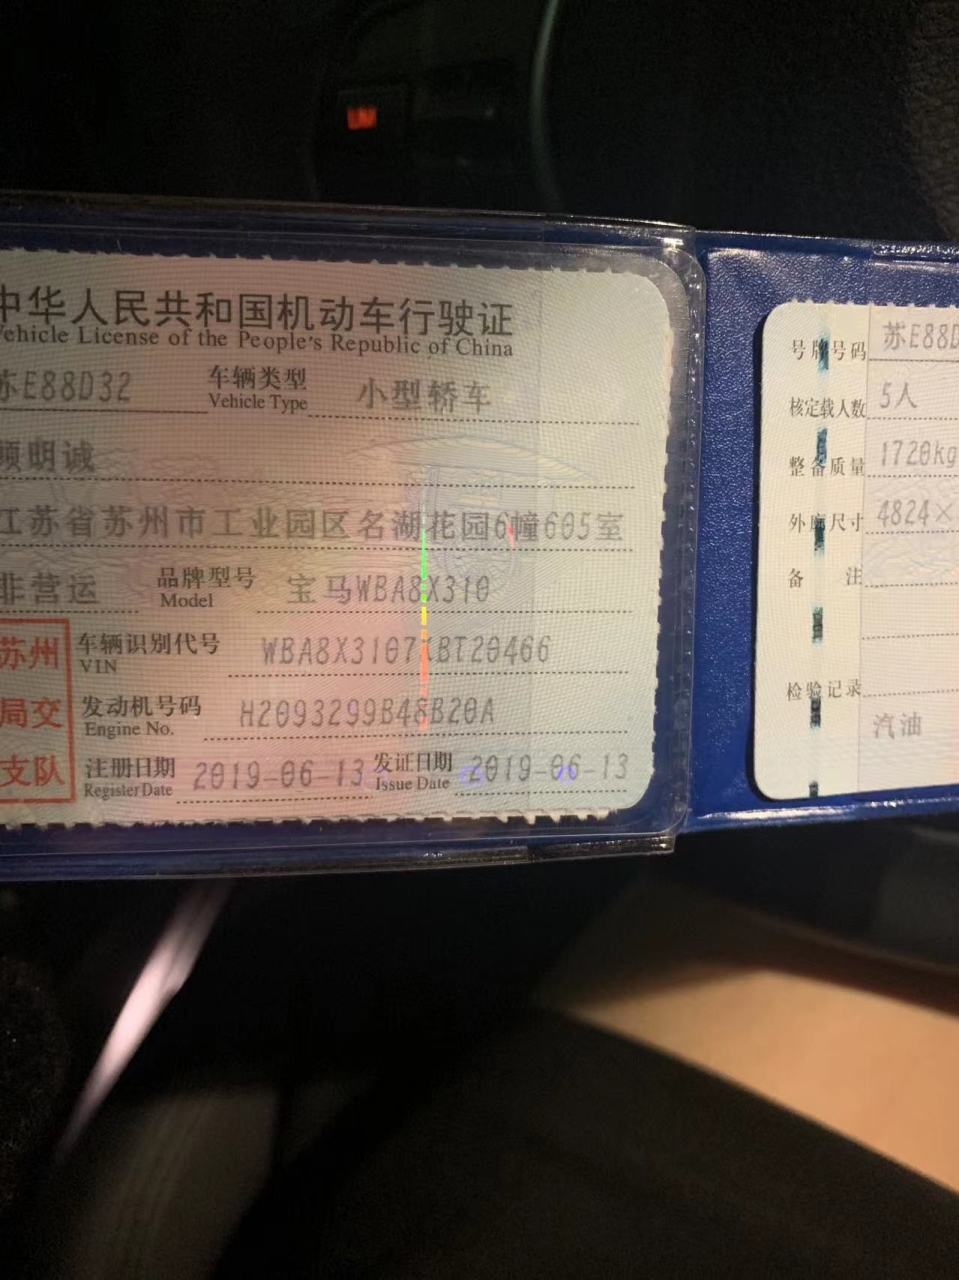 中华人民共和国机动车行驶证
Vehicle License of the People's Republic of China
苏E88D32 车辆类型 Vehicle Type 小型轿车
明诚
江苏省苏州市工业园区名湖花园6幢605室
非营运 品牌型号 Model 宝马WBA8X310
苏州 车辆识别代号 VIN
局交 发动机号码 Engine No. H2093299B48B20A
支队 注册日期 Register Date 2019-06-13 发证日期 Issue Date 2019-06-13
号牌号码 苏E88D
核定载人数 5人
整备质量 1720kg
外廓尺寸 4824×
备 注
检验记录
汽油